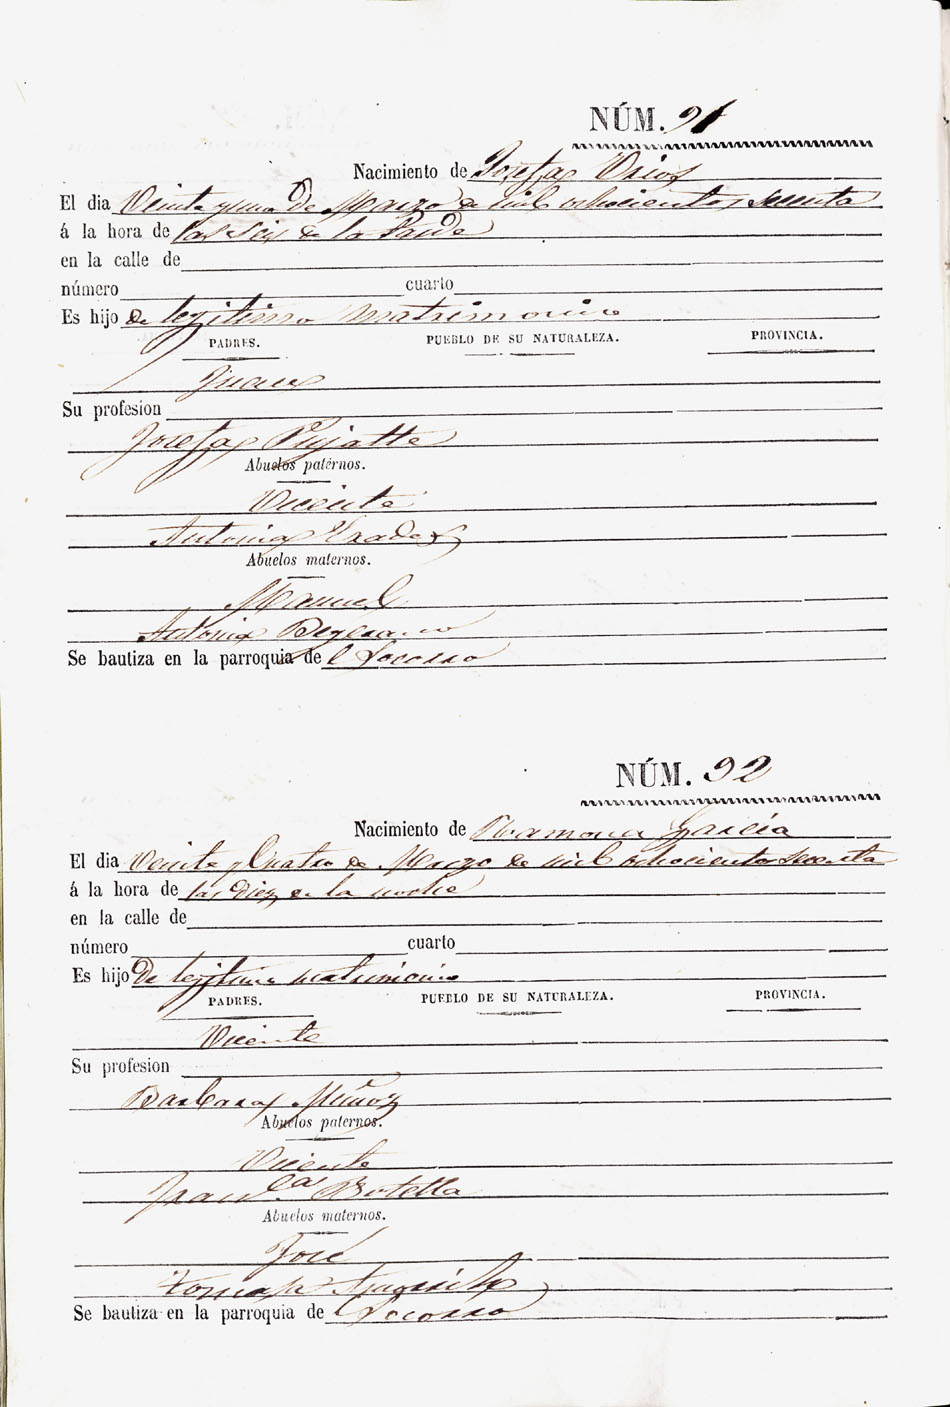 NÚM. 91
Nacimiento de Josefa Orios
El dia Veinte y uno de Marzo de mil ochocientos sesenta
á la hora de las Seis de la Tarde
en la calle de
número cuarto
Es hijo de legitimo matrimonio
PADRES. PUEBLO DE SU NATURALEZA. PROVINCIA.
Juan
Su profesion
Josefa Pujalte
Abuelos paternos.
Vicente
Antonia
Abuelos maternos.
Manuel
Antonia
Se bautiza en la parroquia de l Socorro
NÚM. 92
Nacimiento de Ramona Garcia
El dia Veinte y Cuatro de Marzo de mil ochocientos sesenta
á la hora de las Diez de la noche
en la calle de
número cuarto
Es hijo De legitimo matrimonio
PADRES. PUEBLO DE SU NATURALEZA. PROVINCIA.
Vicente
Su profesion
Barbara Muñoz
Abuelos paternos.
Vicente
Fran.ca Botella
Abuelos maternos.
José
Tomasa
Se bautiza en la parroquia de l Socorro